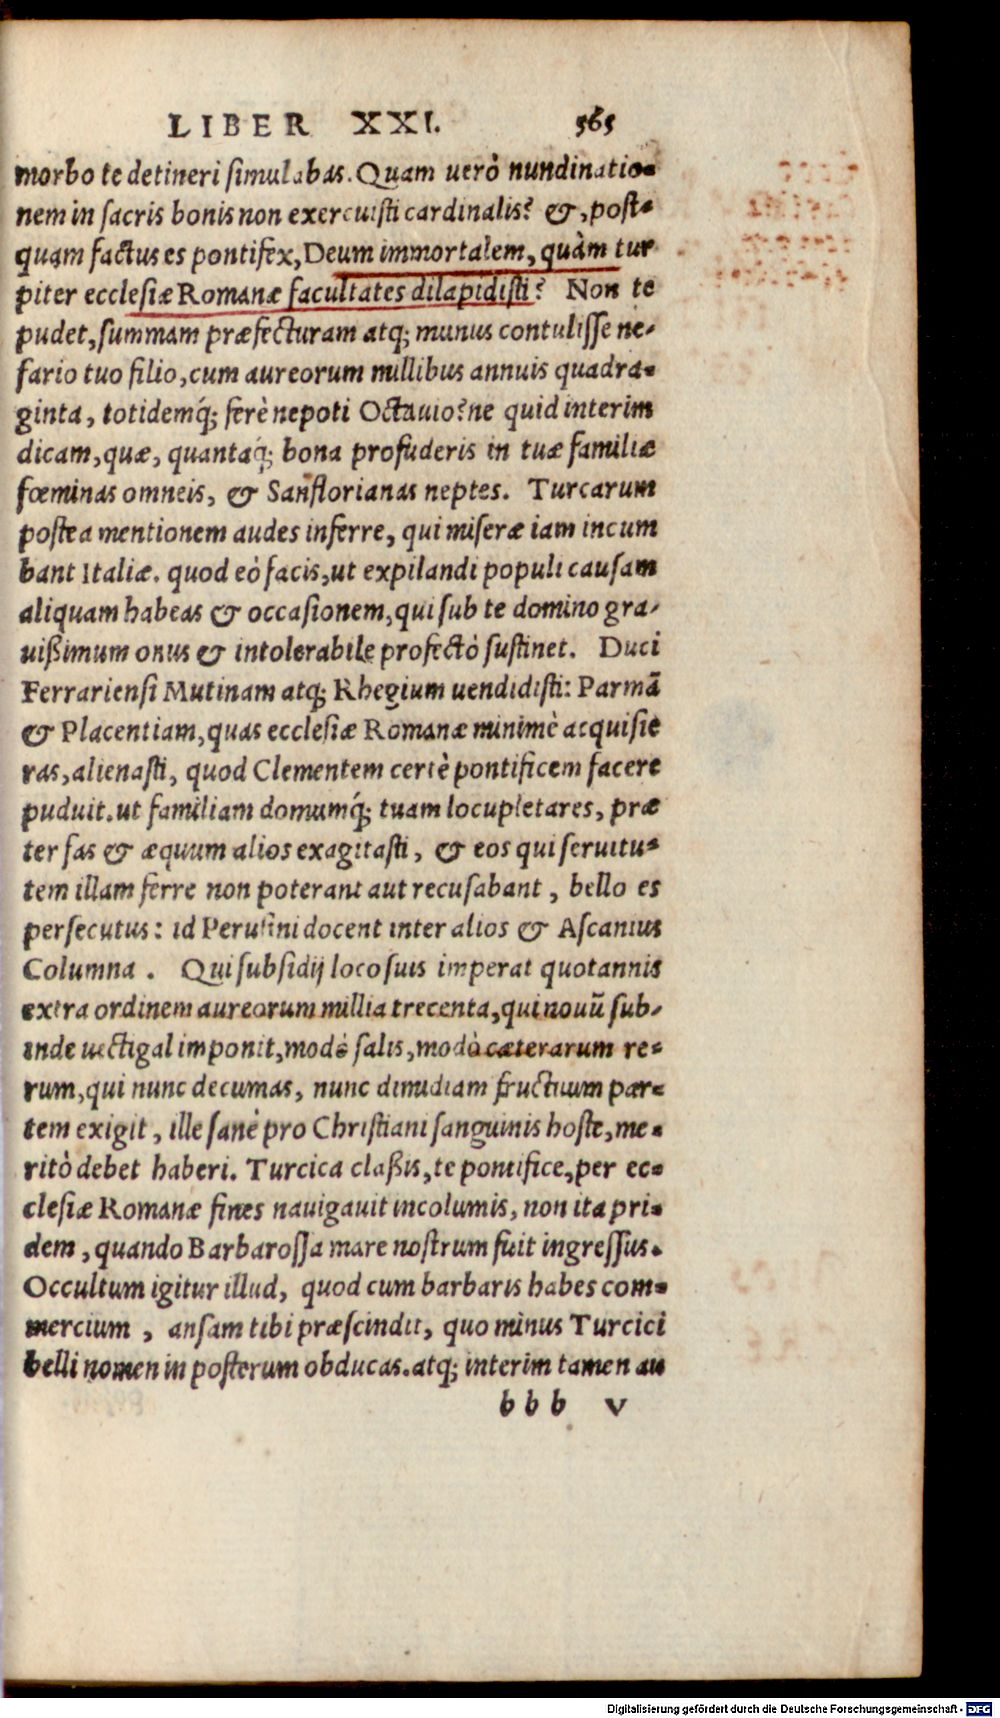 LIBER XXI. 565
morbo te detineri simulabas. Quam uerò nundinatio-
nem in sacris bonis non exercuisti cardinalis? &, post-
quam factus es pontifex, Deum immortalem, quàm tur
piter ecclesiæ Romanæ facultates dilapidisti? Non te
pudet, summam præfecturam atq; munus contulisse ne-
fario tuo filio, cum aureorum millibus annuis quadra-
ginta, totidemq́; ferè nepoti Octauio? ne quid interim
dicam, quæ, quantaq́; bona profuderis in tuæ familiæ
fœminas omneis, & Sanflorianas neptes. Turcarum
postea mentionem audes inferre, qui miseræ iam incum
bant Italiæ. quod eò facis, ut expilandi populi causam
aliquam habeas & occasionem, qui sub te domino gra-
uißimum onus & intolerabile profectò sustinet. Duci
Ferrariensi Mutinam atq; Rhegium uendidisti: Parmā
& Placentiam, quas ecclesiæ Romanæ minimè acquisie
ras, alienasti, quod Clementem certè pontificem facere
puduit. ut familiam domumq́; tuam locupletares, præ
ter fas & æquum alios exagitasti, & eos qui seruitu-
tem illam ferre non poterant aut recusabant, bello es
persecutus: id Perusini docent inter alios & Ascanius
Columna. Qui subsidij loco suis imperat quotannis
extra ordinem aureorum millia trecenta, qui nouū sub-
inde uectigal imponit, modò salis, modò cæterarum re-
rum, qui nunc decumas, nunc dimidiam fructuum par-
tem exigit, ille sanè pro Christiani sanguinis hoste, me-
ritò debet haberi. Turcica claßis, te pontifice, per ec-
clesiæ Romanæ fines nauigauit incolumis, non ita pri-
dem, quando Barbarossa mare nostrum fuit ingressus.
Occultum igitur illud, quod cum barbaris habes com-
mercium, ansam tibi præscindit, quo minùs Turcici
belli nomen in posterum obducas. atq; interim tamen au
bbb v
Digitalisierung gefördert durch die Deutsche Forschungsgemeinschaft - DFG